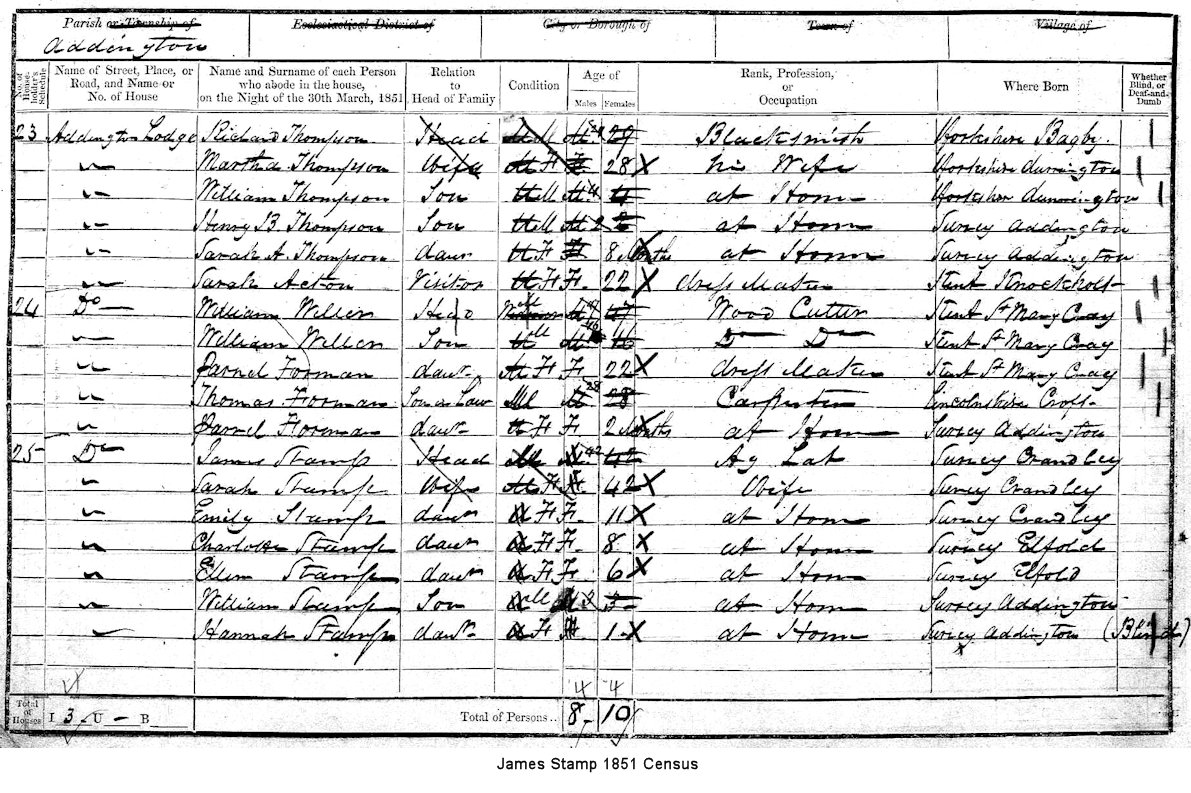 Parish or Township of Ecclesiastical District of City or Borough of Town of Village of
Addington
No. of Householder's Schedule Name of Street, Place, or Road, and Name or No. of House Name and Surname of each Person who abode in the house, on the Night of the 30th March, 1851 Relation to Head of Family Condition Age of Males Females Rank, Profession, or Occupation Where Born Whether Blind, or Deaf-and-Dumb
23 Addington Lodge Richard Thompson Head M 29 Blacksmith Yorkshire Bagby
Martha Thompson Wife F F 28 his Wife Yorkshire
William Thompson Son M 4 at Home Yorkshire
Henry B. Thompson Son M 2 at Home Surrey Addington
Sarah A. Thompson daur F F 8 Months at Home Surrey Addington
Sarah Acton Visitor F F 22 dress Maker Kent Knockholt
24 Do William Willer Head 47 Wood Cutter Kent St Mary Cray
William Willer Son M 16 Do Do Kent St Mary Cray
Parnel Forman daur F F 22 dress Maker Kent St Mary Cray
Thomas Forman Son in Law M 28 Carpenter Lincolnshire Croft
Parnel Forman daur F F 2 Months at Home Surrey Addington
25 Do James Stamp Head M 42 Ag Lab Surrey Crandley
Sarah Stamp Wife F F 42 Wife Surrey Crandley
Emily Stamp daur F F 11 at Home Surrey Crandley
Charlotte Stamp daur F F 8 at Home Surrey Elfold
Ellen Stamp daur F F 6 at Home Surrey Elfold
William Stamp Son M 3 at Home Surrey Addington
Hannah Stamp daur F 1 at Home Surrey Addington (Blind)
4 4
Total of Houses I 3 U - B Total of Persons.. 8 10
James Stamp 1851 Census